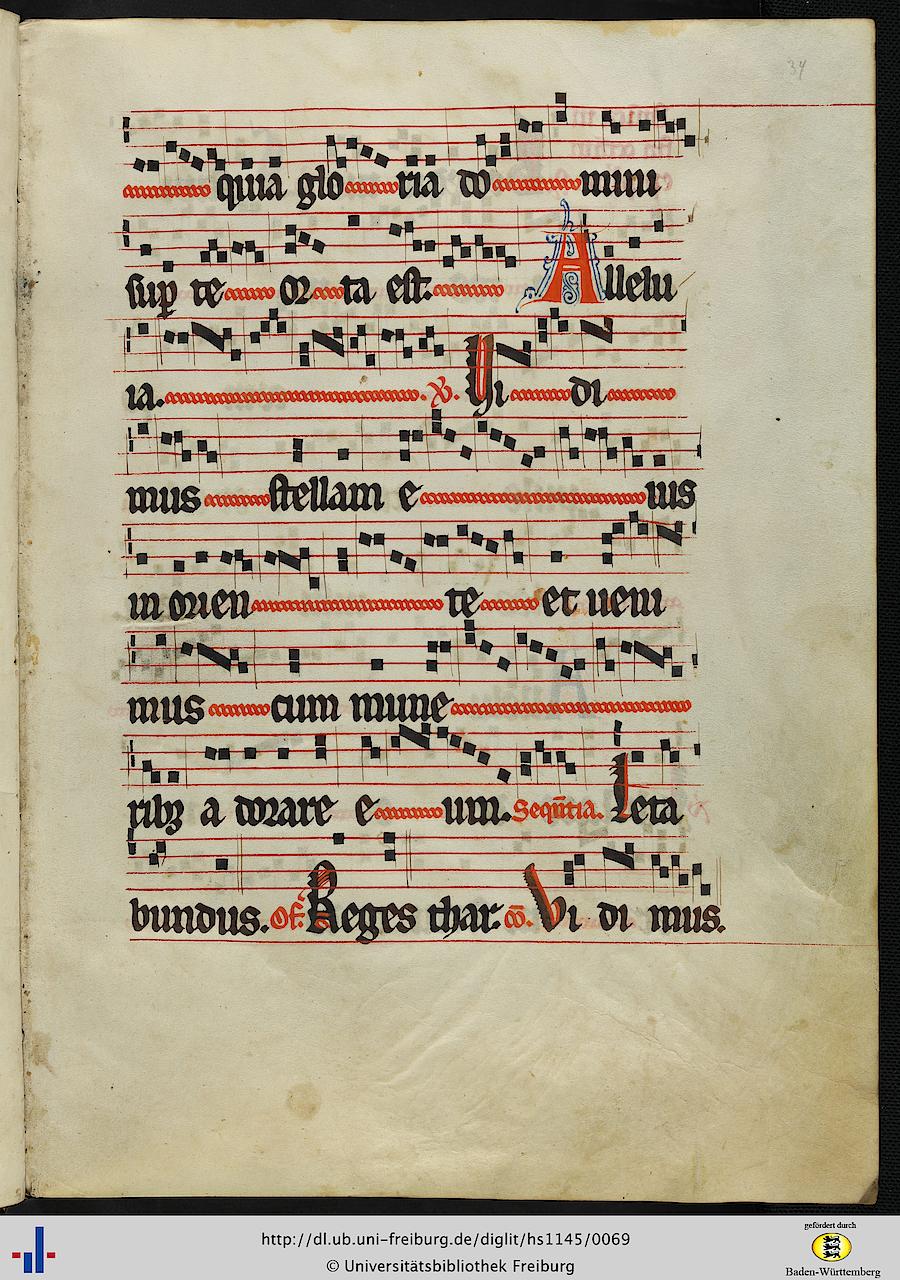 34
quia glo ria do mini
sup te or ta est. Allelu
ia. V. Vi di
mus stellam e ius
in orien te et ueni
mus cum mune
ribꝫ a dorare eum. Sequ̅tia. Leta
bundus. Of. Reges thar. co̅. Vi di mus.
http://dl.ub.uni-freiburg.de/diglit/hs1145/0069
© Universitätsbibliothek Freiburg
gefördert durch
Baden-Württemberg